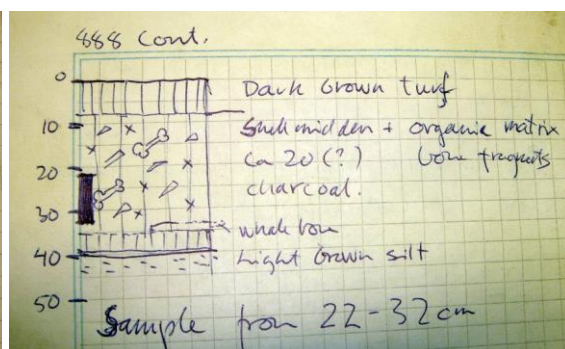 888 Cont.
0
Dark brown turf
10
Shell midden + organic matrix
20
ca 20 (?) bone fragments
charcoal.
30
whale bone
40
Light brown silt
50
Sample from 22-32 cm